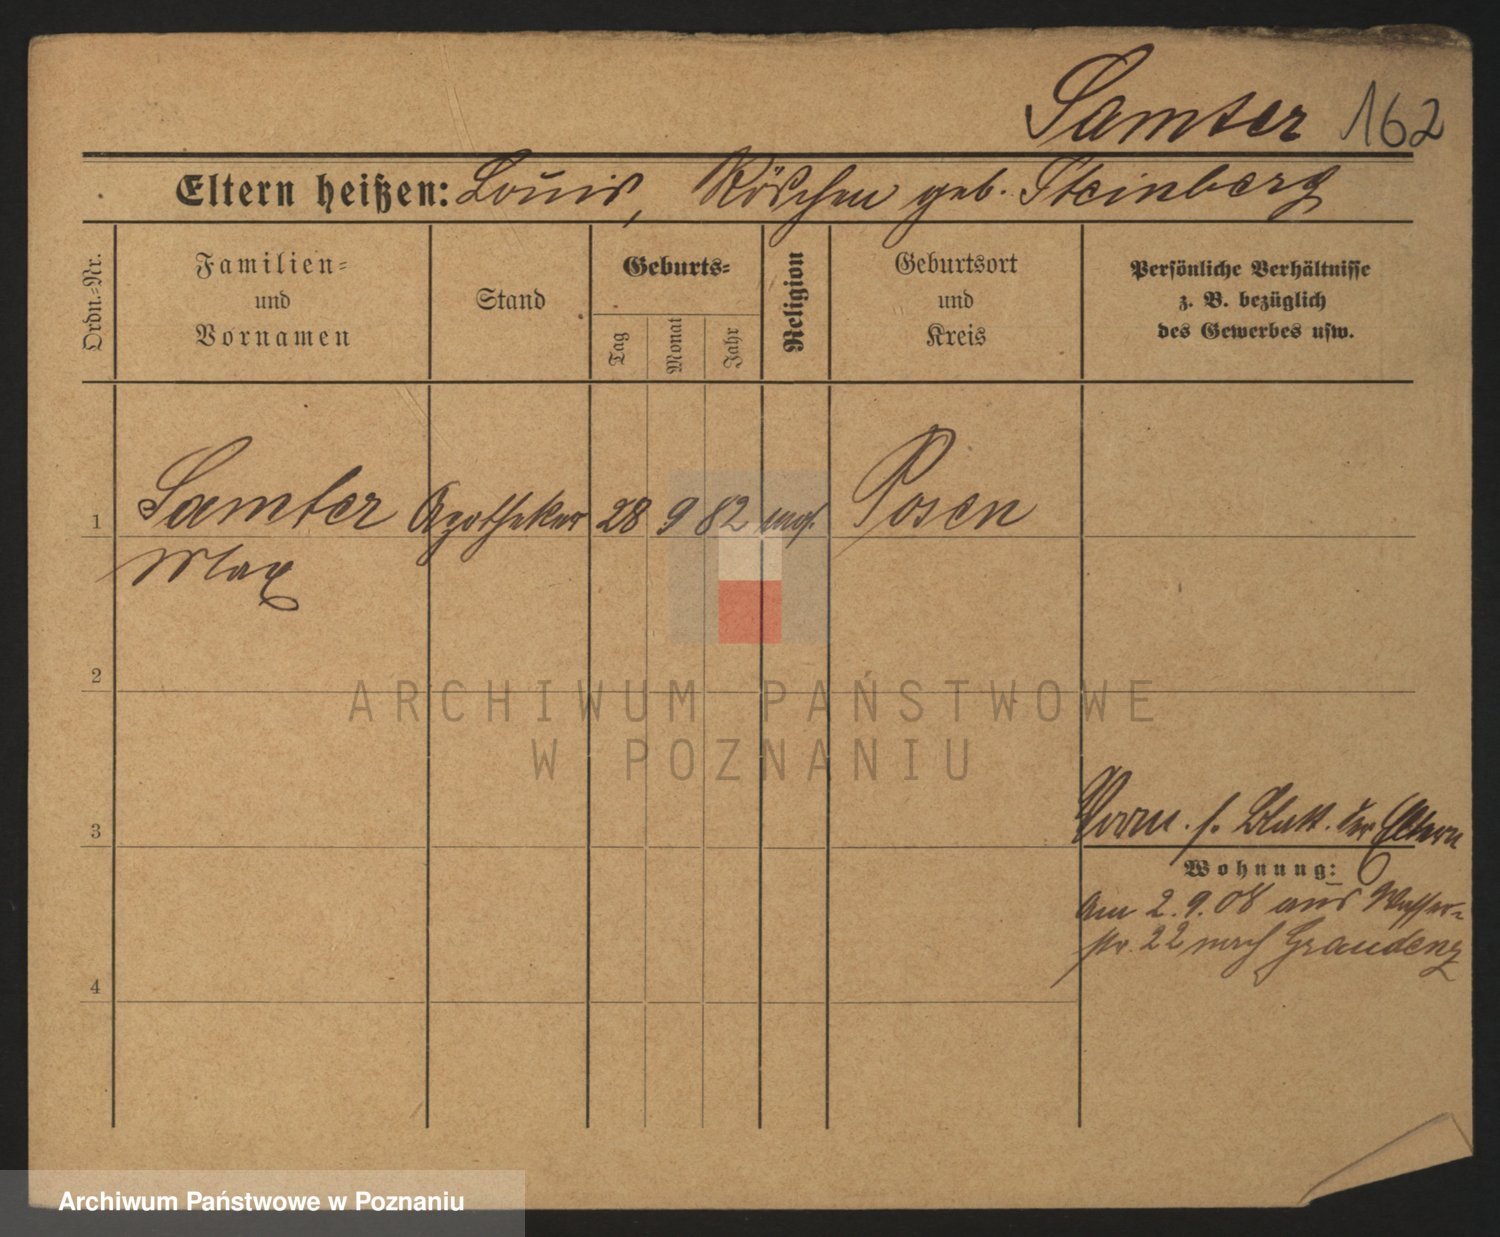 Samter 162
Eltern heißen: Louis, Röschen geb. Steinberg
Ordn.-Nr.
Familien-
und
Vornamen
Stand
Geburts-
Tag
Monat
Jahr
Religion
Geburtsort
und
Kreis
Persönliche Verhältnisse
z. B. bezüglich
des Gewerbes usw.
1 Samter Apotheker 28 9 82 mos. Posen
Max
2
ARCHIWUM PAŃSTWOWE
W POZNANIU
3
s. Blatt. der Eltern
Wohnung:
Am 2.9.08 aus Wasser-
str. 22 nach Graudenz
4
Archiwum Państwowe w Poznaniu